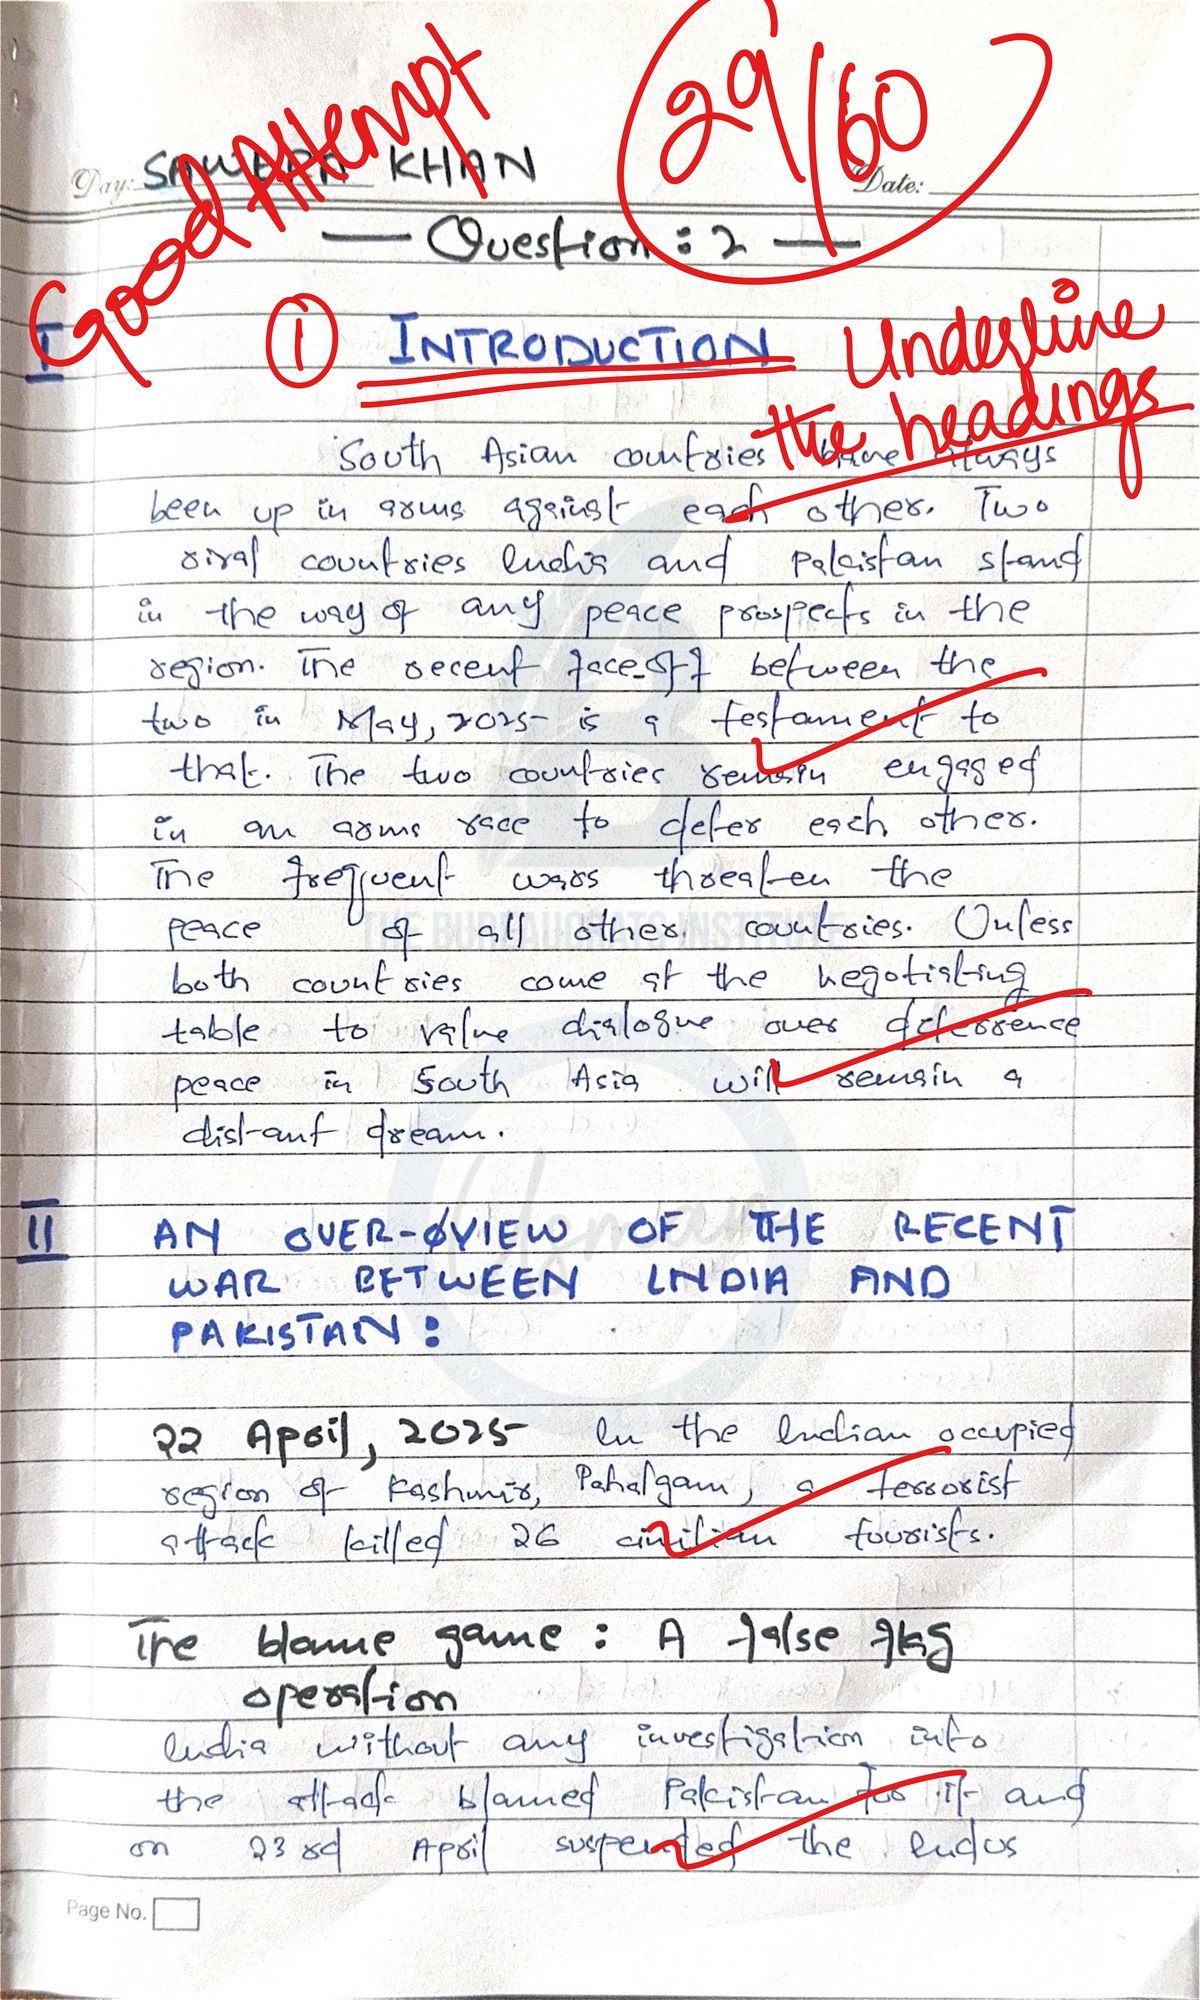 Good Attempt
29/60
Day: SAWERA KHAN Date:
— Question : 2 —
I ① INTRODUCTION
Underline
the headings
South Asian countries have always
been up in arms against each other. Two
rival countries India and Pakistan stand
in the way of any peace prospects in the
region. The recent face-off between the
two in May, 2025 is a testament to
that. The two countries remain engaged
in an arms race to deter each other.
The frequent wars threaten the
peace of all other countries. Unless
both countries come at the negotiating
table to value dialogue over deterrence
peace in South Asia will remain a
distant dream.
THE BUREAUCRATS INSTITUTE
II AN OVER-VIEW OF THE RECENT
WAR BETWEEN INDIA AND
PAKISTAN:
22 April, 2025 In the Indian occupied
region of Kashmir, Pahalgam, a terrorist
attack killed 26 civilian tourists.
The blame game : A false flag
operation
India without any investigation into
the attack blamed Pakistan for it and
on 23rd April suspended the Indus
Page No.